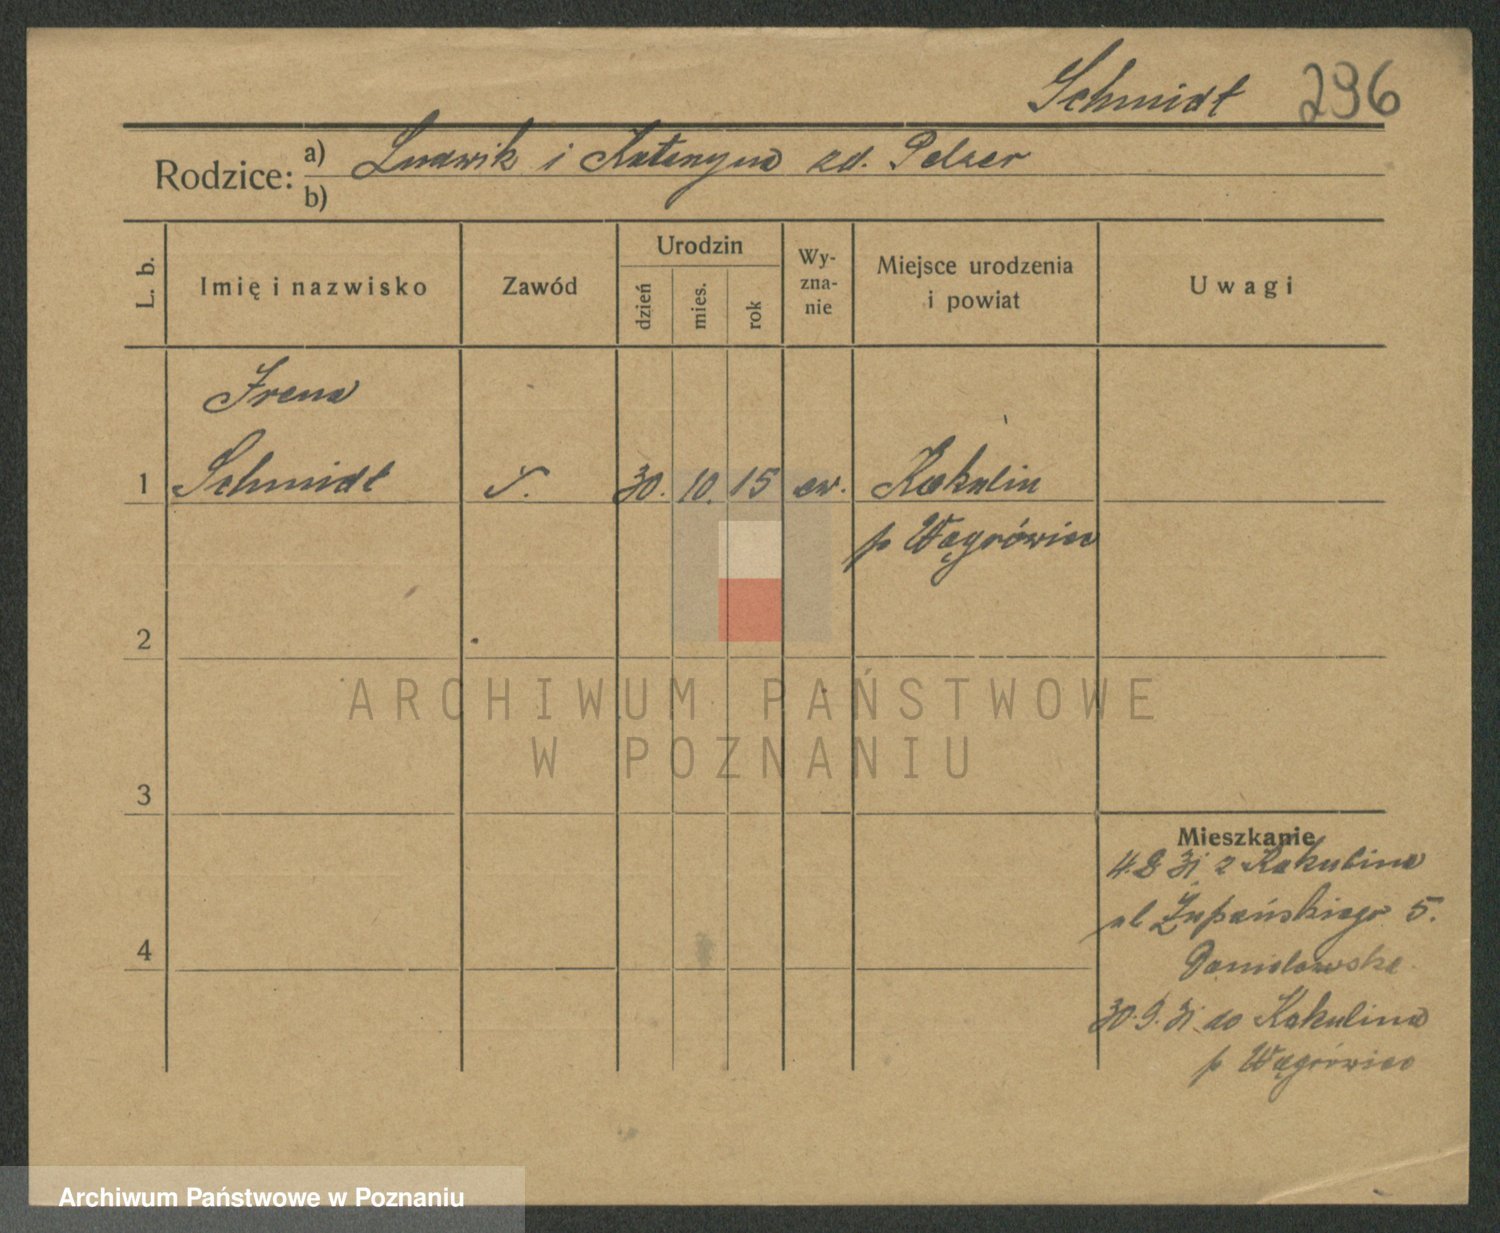 Schmidt 296
Rodzice: a) Ludwik i Katarzyna zd. Pelzer
b)
L. b.
Imię i nazwisko
Zawód
Urodzin
dzień
mies.
rok
Wy-
zna-
nie
Miejsce urodzenia
i powiat
Uwagi
Irena
1 Schmidt 30. 10. 15 ew. Kakulin
p Wągrówiec
2
3
4
Mieszkanie
31 z Kakulina
ul Żupańskiego 5.
30.9.31 do Kakulina
p Wągrówiec
ARCHIWUM PAŃSTWOWE
W POZNANIU
Archiwum Państwowe w Poznaniu